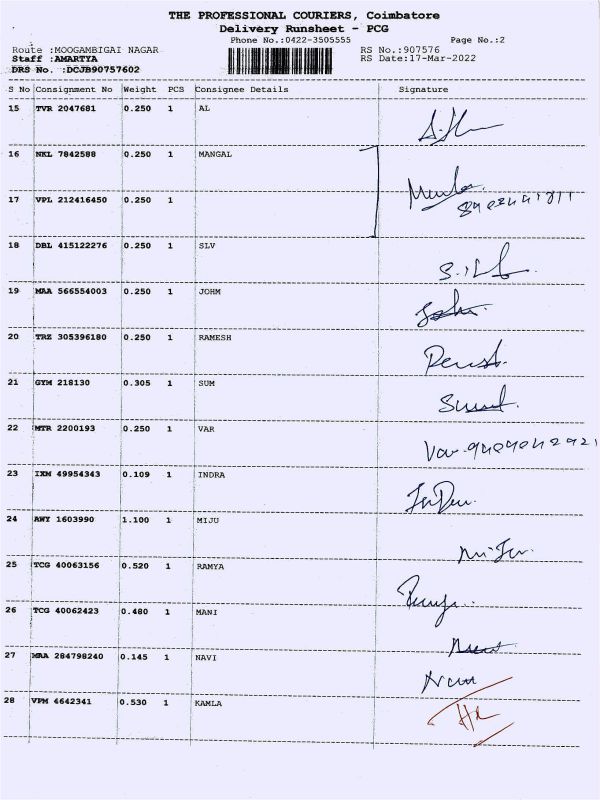 THE PROFESSIONAL COURIERS, Coimbatore
Delivery Runsheet - PCG
Phone No.:0422-3505555 Page No.:2
Route :MOOGAMBIGAI NAGAR RS No.:907576
Staff :AMARTYA RS Date:17-Mar-2022
DRS No. :DCJB90757602
S No Consignment No Weight PCS Consignee Details Signature
15 TVR 2047681 0.250 1 AL
16 NKL 7842588 0.250 1 MANGAL
17 VPL 212416450 0.250 1
18 DBL 415122276 0.250 1 SLV
19 MAA 566554003 0.250 1 JOHM
20 TRZ 305396180 0.250 1 RAMESH
21 GYM 218130 0.305 1 SUM
22 MTR 2200193 0.250 1 VAR
23 IXM 49954343 0.109 1 INDRA
24 AWY 1603990 1.100 1 MIJU
25 TCG 40063156 0.520 1 RAMYA
26 TCG 40062423 0.480 1 MANI
27 MAA 284798240 0.145 1 NAVI
28 VPM 4642341 0.530 1 KAMLA